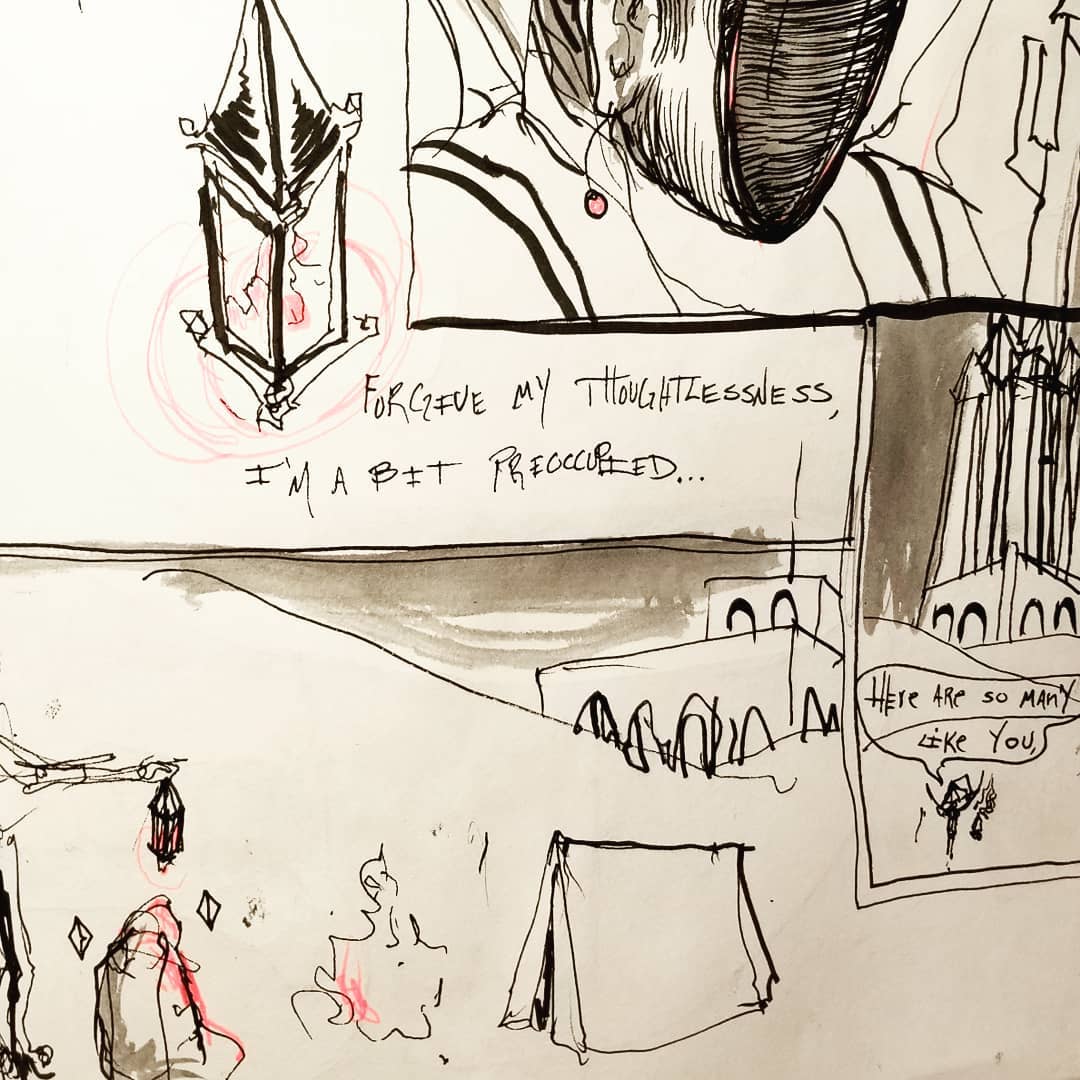 FORGIVE MY THOUGHTLESSNESS,
I'M A BIT PREOCCUPIED...
HERE ARE SO MANY
LIKE YOU,